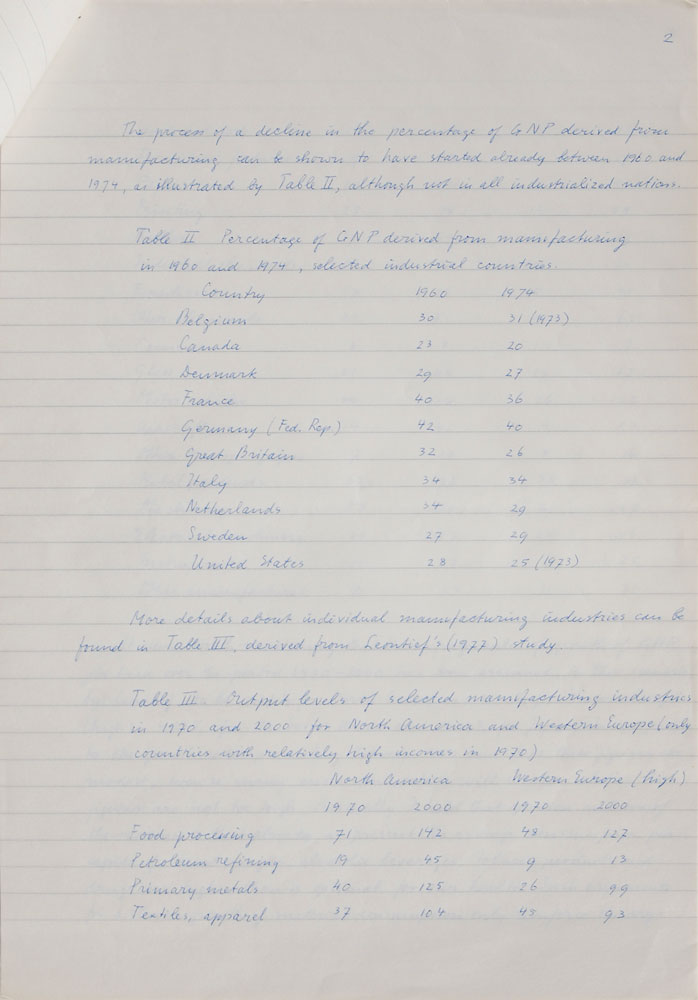 2
The process of a decline in the percentage of GNP derived from
manufacturing can be shown to have started already between 1960 and
1974, as illustrated by Table II, although not in all industrialized nations.
Table II Percentage of GNP derived from manufacturing
in 1960 and 1974, selected industrial countries.
Country 1960 1974
Belgium 30 31 (1973)
Canada 23 20
Denmark 29 27
France 40 36
Germany (Fed. Rep.) 42 40
Great Britain 32 26
Italy 34 34
Netherlands 34 29
Sweden 27 29
United States 28 25 (1973)
More details about individual manufacturing industries can be
found in Table III, derived from Leontief's (1977) study.
Table III. Output levels of selected manufacturing industries
in 1970 and 2000 for North America and Western Europe (only
countries with relatively high incomes in 1970)
North America Western Europe (high)
1970 2000 1970 2000
Food processing 71 142 48 127
Petroleum refining 19 45 9 13
Primary metals 40 125 26 99
Textiles, apparel 37 104 45 93